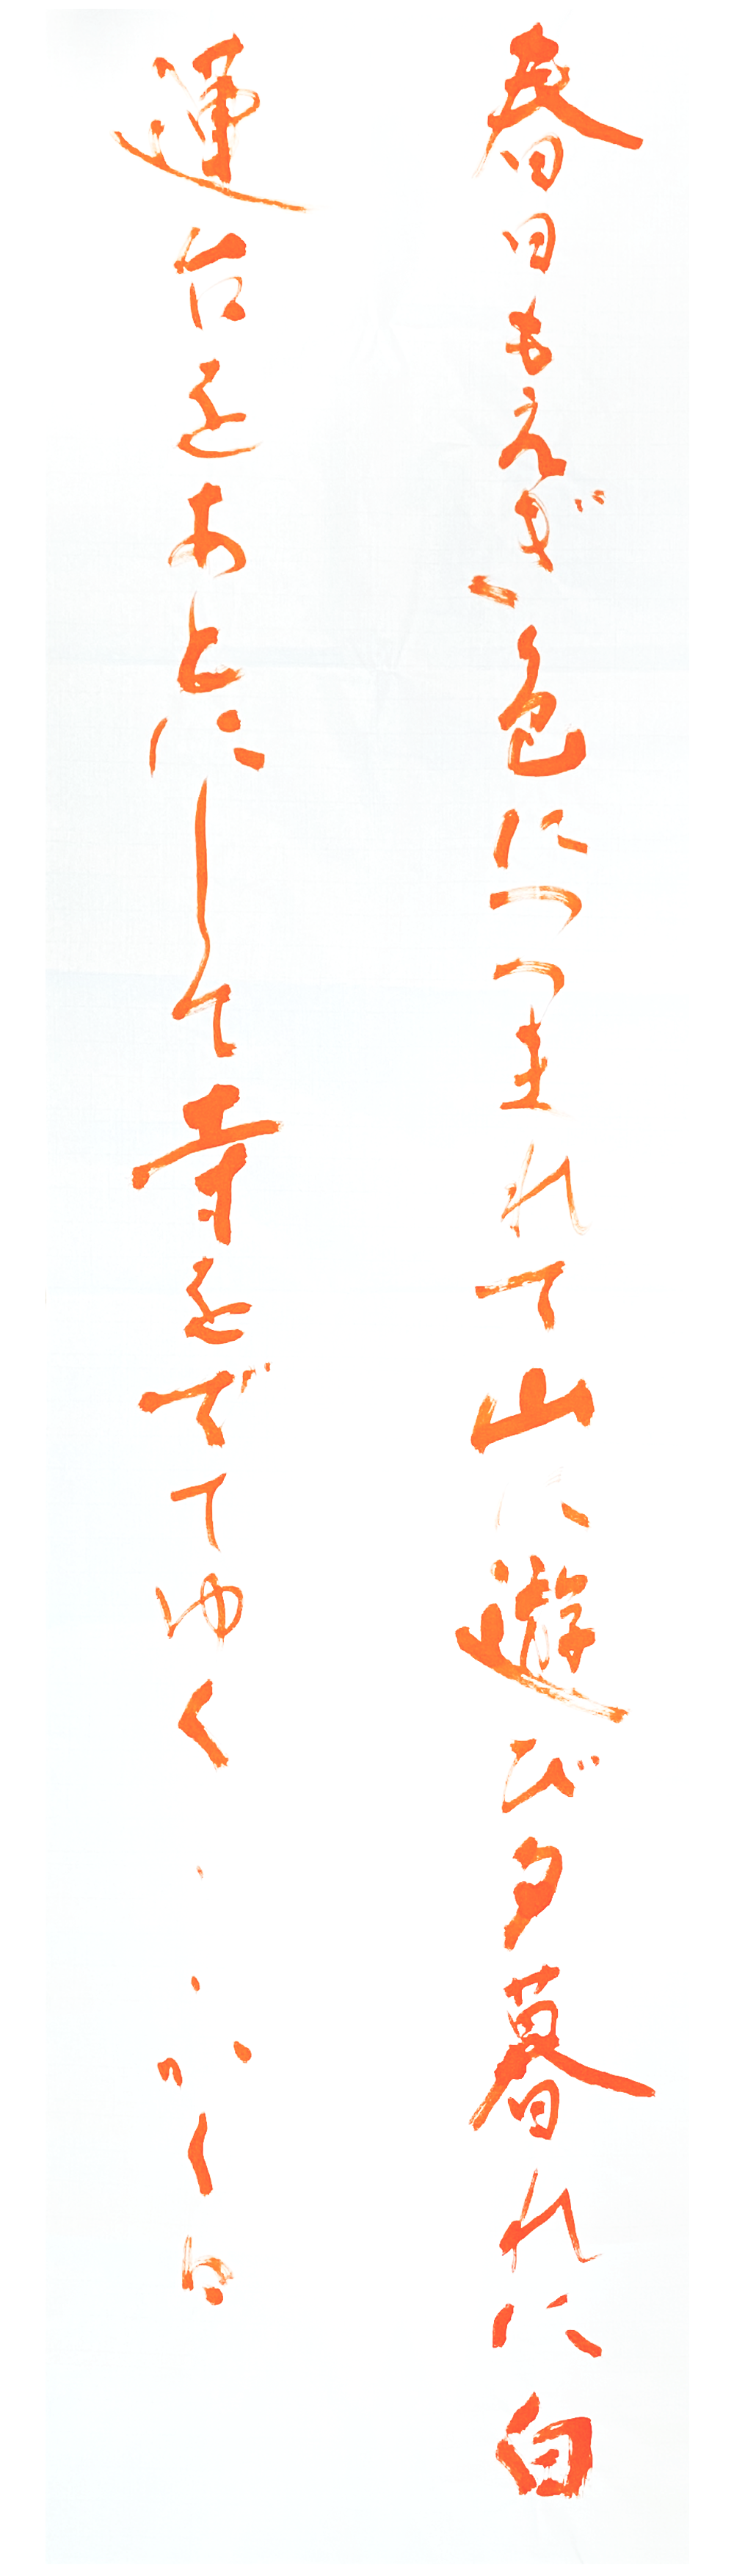 春日もえぎ色につつまれて山に遊び夕暮れに白
蓮台をあとにして寺をでてゆく
かくは